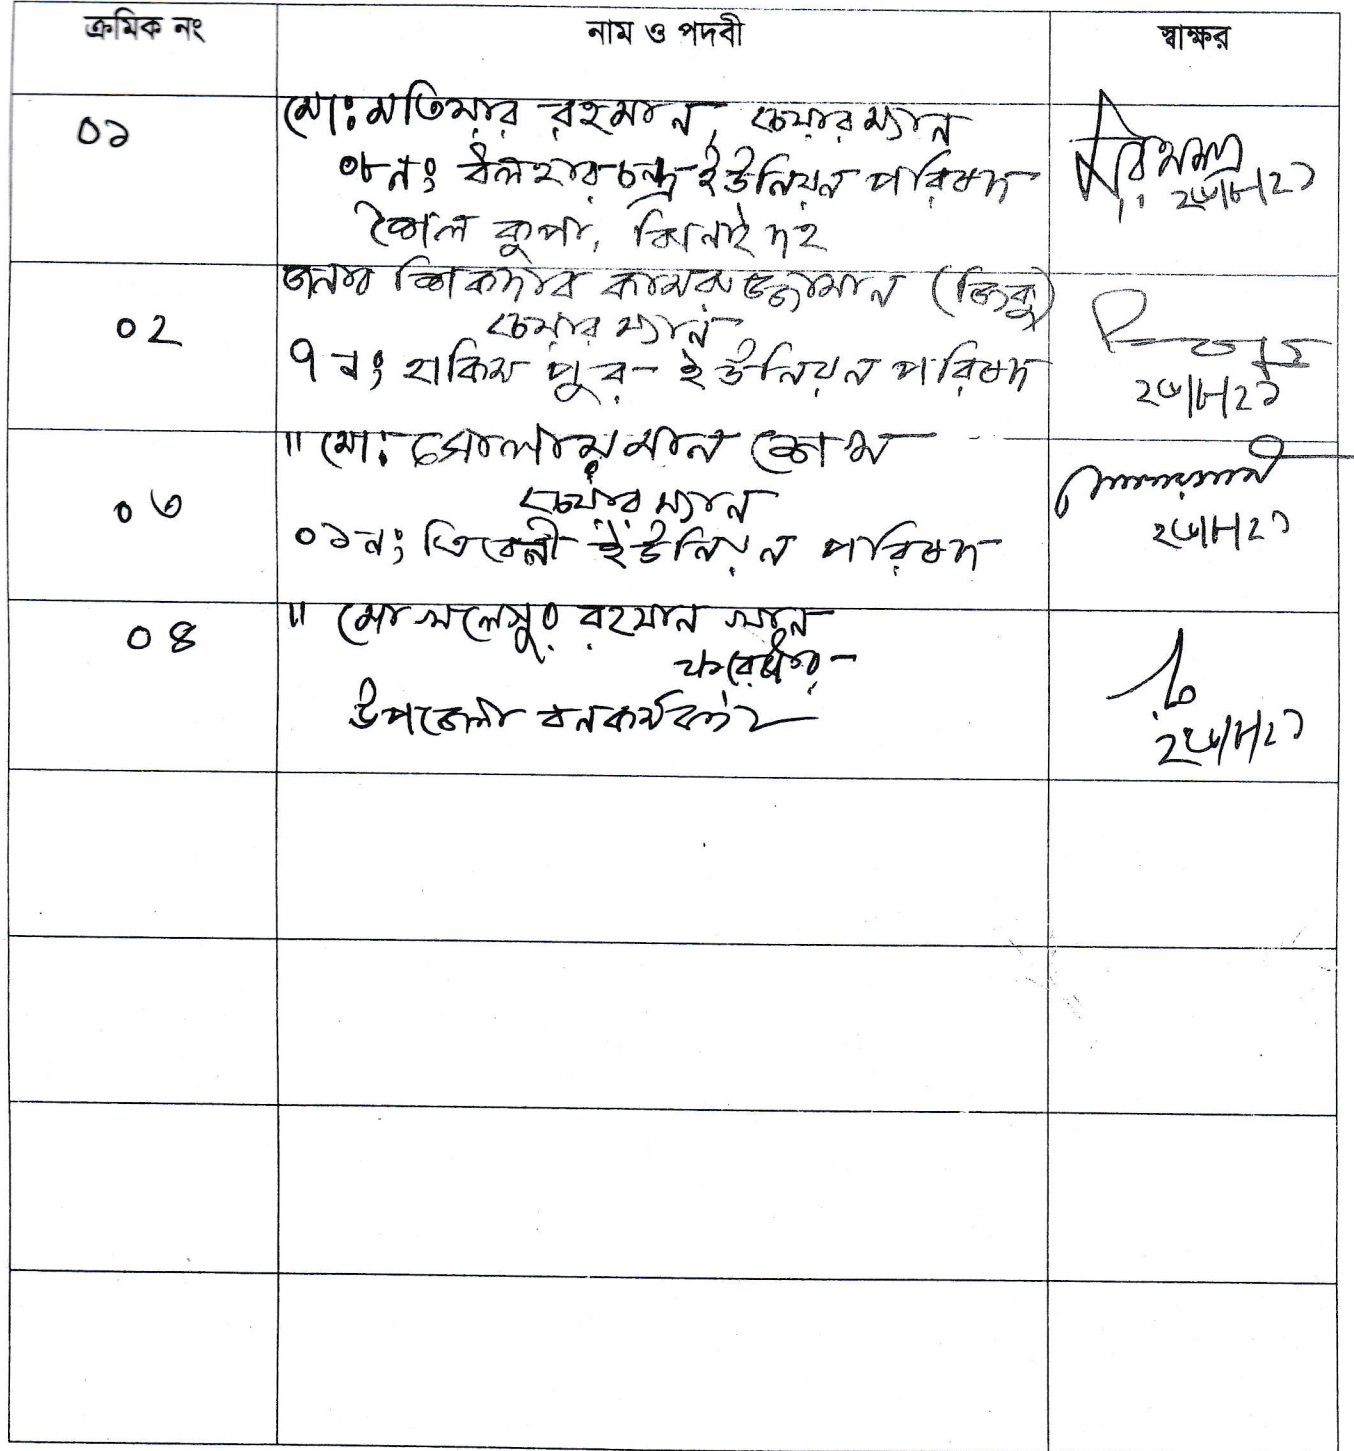 ক্রমিক নং নাম ও পদবী স্বাক্ষর
০১ মোঃ মতিয়ার রহমান, চেয়ারম্যান
০৮নং ধলহারচন্দ্র ইউনিয়ন পরিষদ
শৈলকুপা, ঝিনাইদহ
২৬/৮/২১
জনাব শিকদার কামরুজ্জামান (জিকু)
০২ চেয়ারম্যান
৭নং হাকিমপুর- ইউনিয়ন পরিষদ
২৬/৮/২১
" মো: সোলায়মান শেখ
০৩ চেয়ারম্যান
০১নং ত্রিবেনী ইউনিয়ন পরিষদ
২৬/৮/২১
০৪ " মোখলেসুর রহমান খান
ফরেষ্টার-
উপজেলা বনকর্মকর্তা
২৬/৮/২১